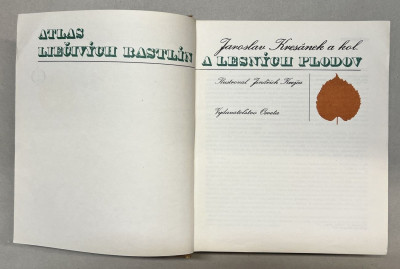 ATLAS
LIEČIVÝCH RASTLÍN
Jaroslav Kresánek a kol.
A LESNÝCH PLODOV
Ilustroval Jindřich Krejča
Vydavateľstvo Osveta